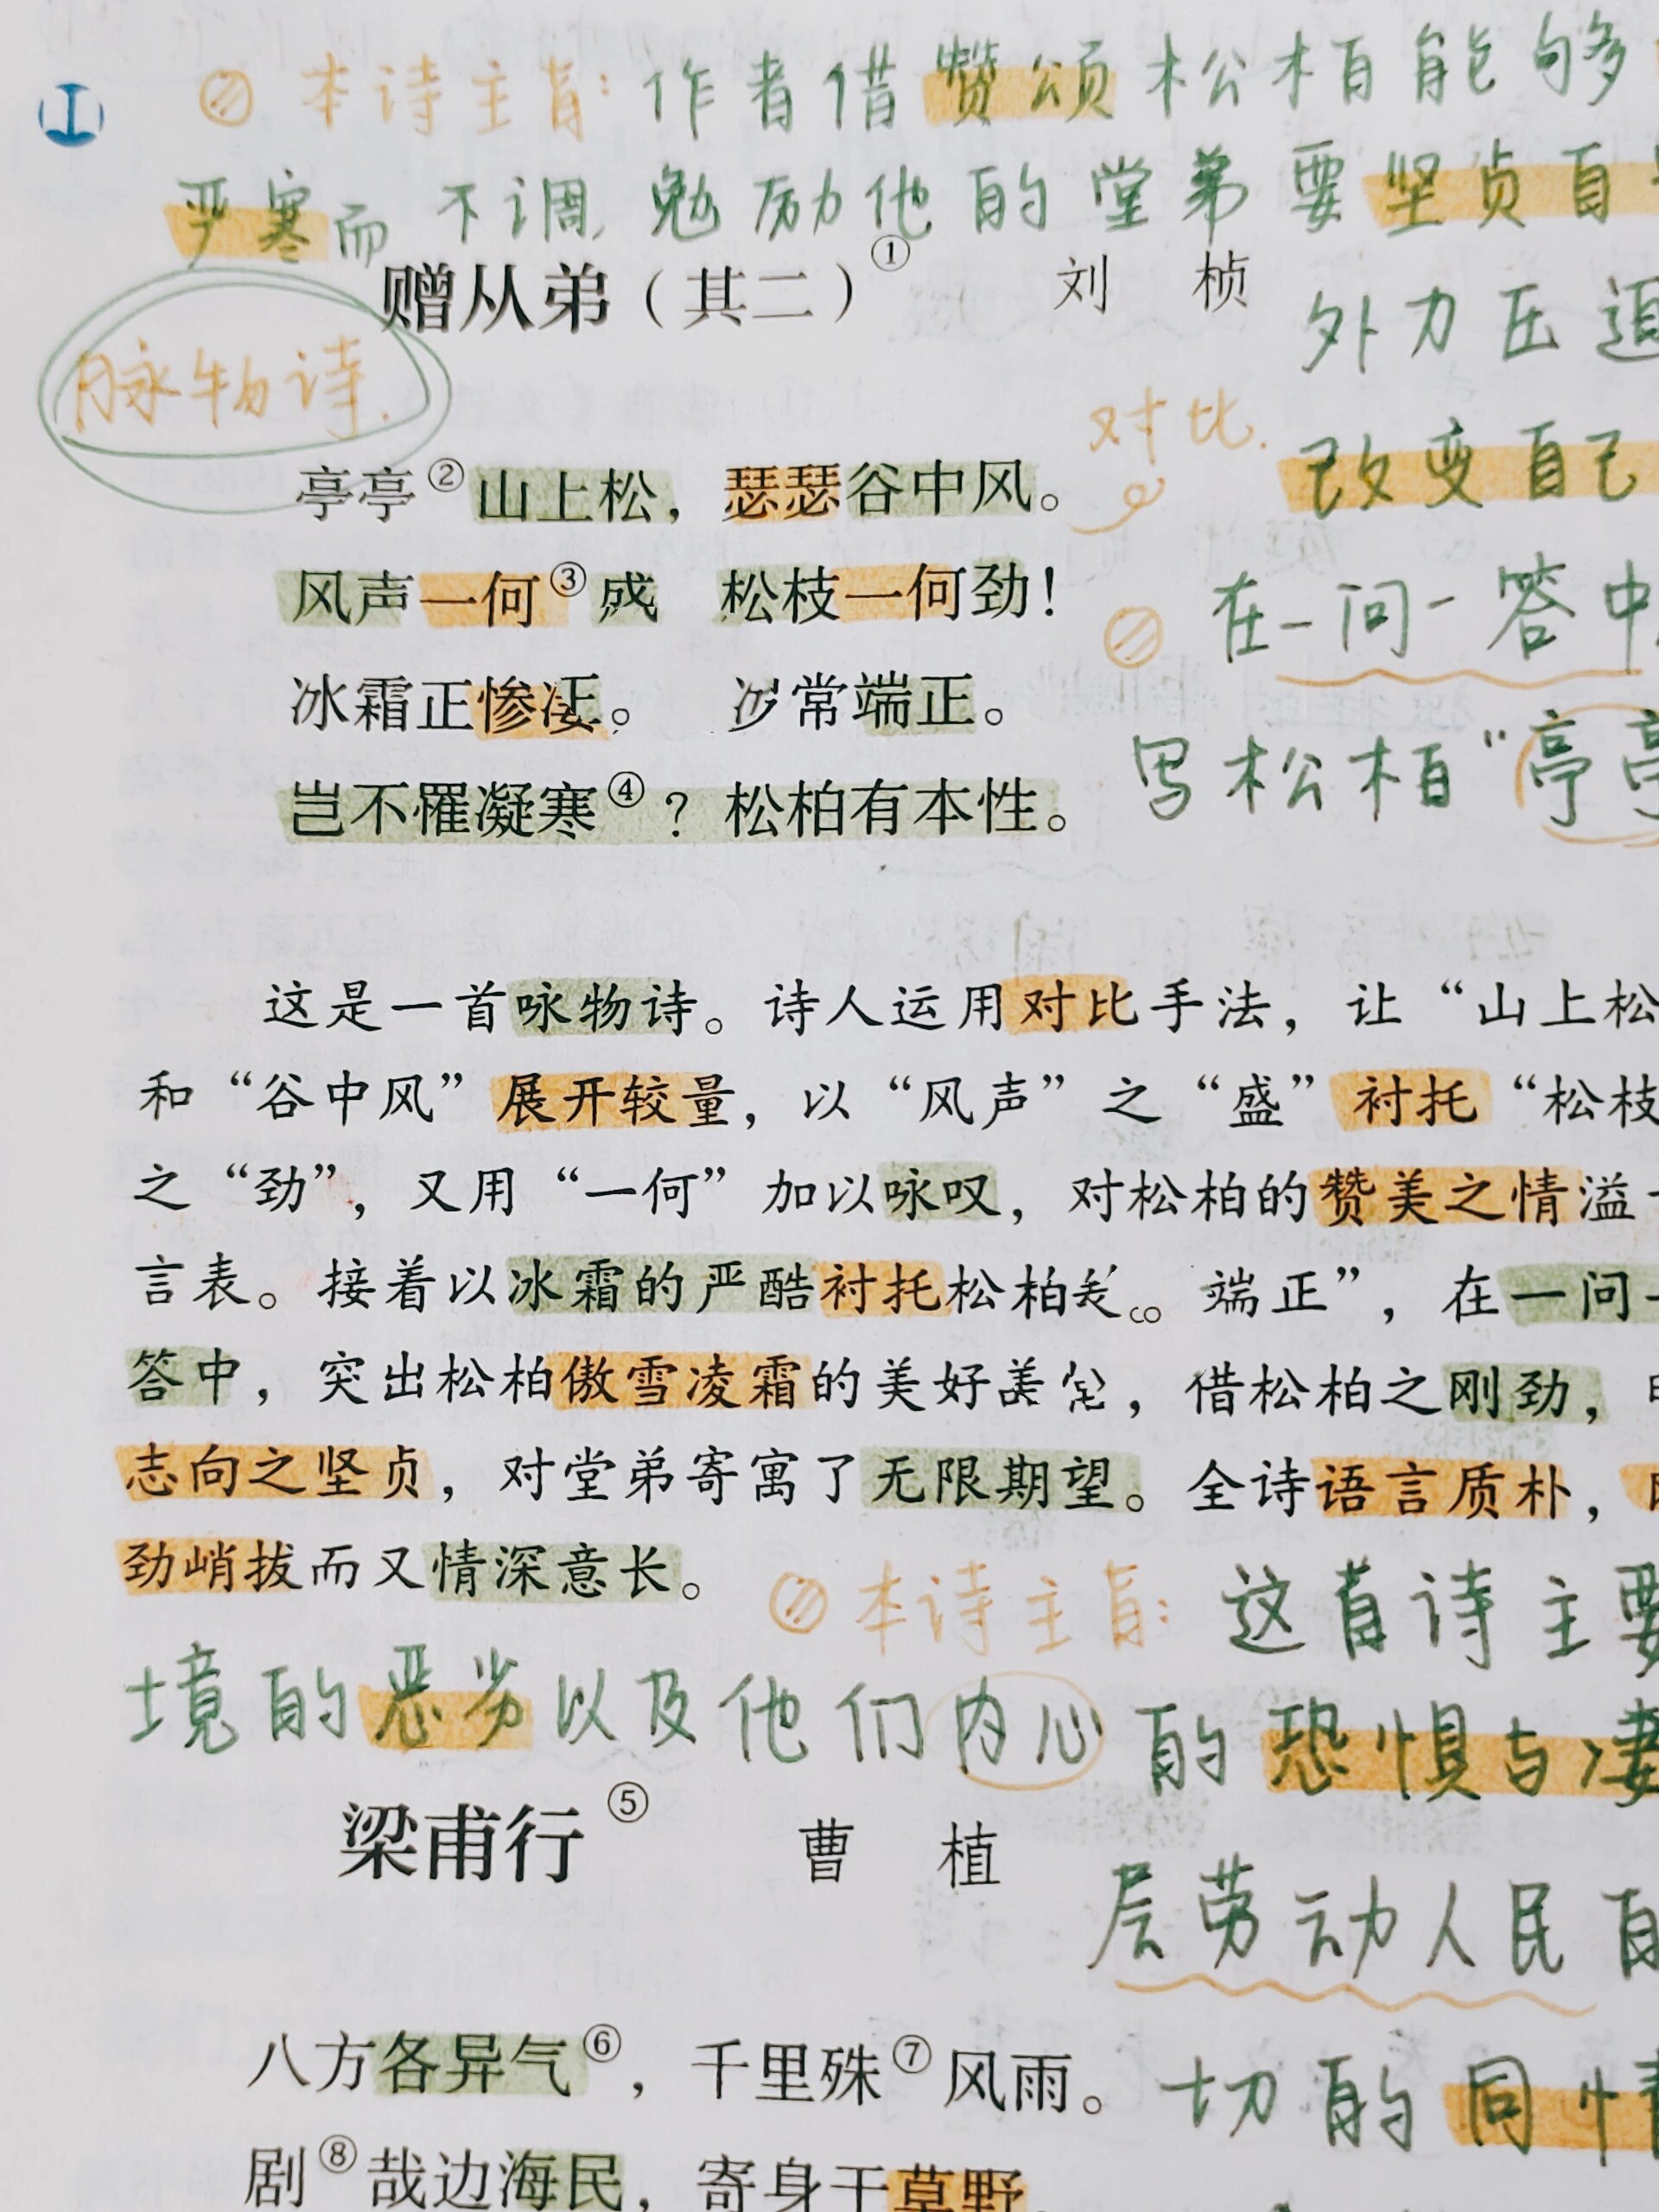 本诗主旨:作者借赞颂松柏能够
严寒而不调,勉励他的堂弟要坚贞自
赠从弟（其二）① 刘 桢
外力压迫
脉物诗.
对比.
改变自己
亭亭②山上松，瑟瑟谷中风。
风声一何③ 松枝一何劲！
在一问一答中
冰霜正惨 常端正。
写松柏“亭亭
岂不罹凝寒④？松柏有本性。
这是一首咏物诗。诗人运用对比手法，让“山上松
和“谷中风”展开较量，以“风声”之“盛”衬托“松枝
之“劲”，又用“一何”加以咏叹，对松柏的赞美之情溢
言表。接着以冰霜的严酷衬托松柏 端正”，在一问
答中，突出松柏傲雪凌霜的美好 ，借松柏之刚劲，
志向之坚贞，对堂弟寄寓了无限期望。全诗语言质朴，
劲峭拔而又情深意长。
本诗主旨:这首诗主要
境的恶劣以及他们内心的恐惧与凄
梁甫行⑤ 曹 植
层劳动人民
八方各异气⑥，千里殊⑦风雨。
切的同情
剧⑧哉边海民，寄身于草野